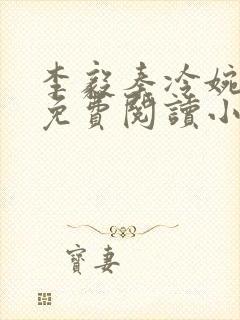 李毅秦冷婉
免費閱讀小
寶妻